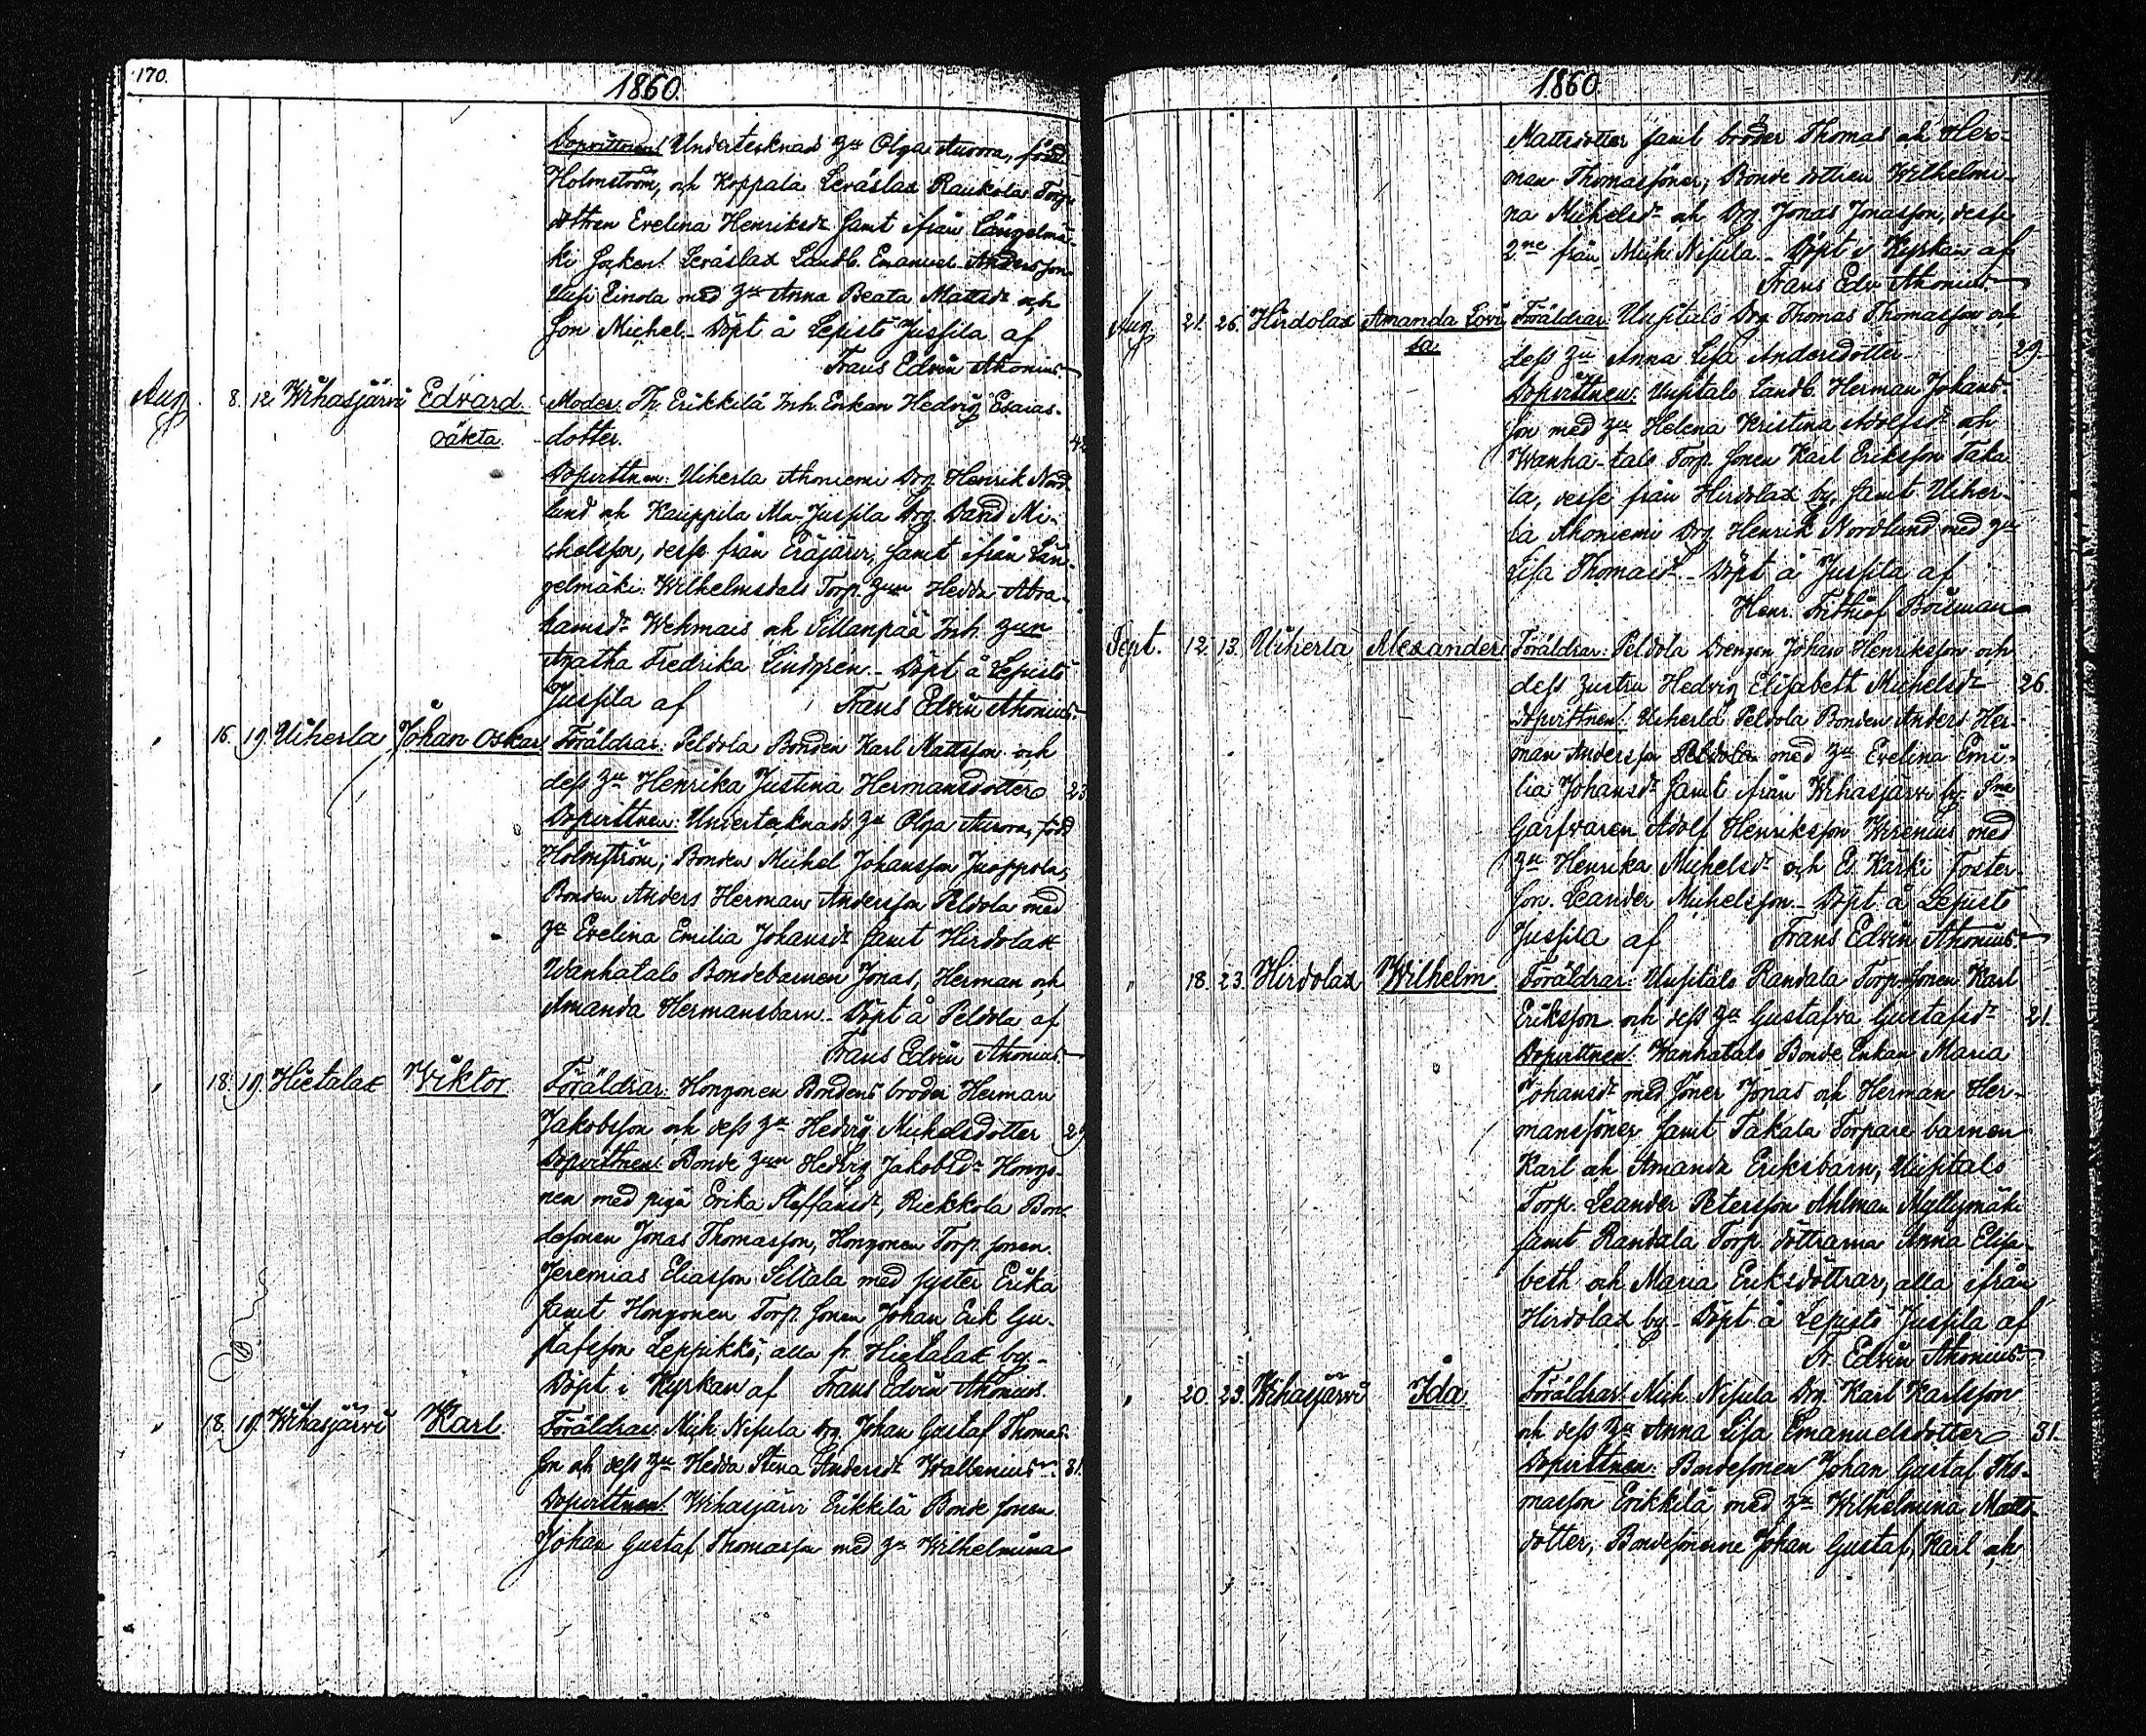 170.
1860.
Dopvittnen: Undertecknads Zu Olga Aurora, född
Holmström, och Koppala Leräslax Raukola Torp.
dottren Evelina Henriksdr samt ifrån Längelmä-
ki Socken: Leräslax Landb. Emanuel Andersson
Uusi Einola med Zu Anna Beata Mattsdr och
son Michel. Döpt å Lepistö Jussila af
Frans Edvin Ahonius
Aug. 8. 12. Wihasjärvi Edvard Moder: Th. Erikkilä Inh. Enkan Hedvig Esaias-
oäkta. dotter. 42
Dopvittnen: Uiherla Ahoniemi Drg. Henrik Nord-
lund och Kauppila Ala-Jussila Drg. David Mi-
chelsson, desse från Eräjärvi, samt ifrån Län-
gelmäki: Wilhelmsdals Torp. Zun Hedda Abra-
hamsdr Wehmais och Sillanpää Inh. Zun
Agatha Fredrika Lindgren. Döpt å Lepistö
Jussila af Frans Edvin Ahonius
" 16. 19. Uiherla Johan Oskar Föräldrar: Peldola Bonden Karl Mattsson och
dess Zu Henrika Justina Hermansdotter 23
Dopvittnen: Undertecknads Zu Olga Aurora, född
Holmström; Bonden Michel Johansson Juoppola,
Bonden Anders Herman Andersson Peldola med
Zu Evelina Emilia Johansdr samt Hirdolax
Wanhatalo Bondebarnen Jonas, Herman och
Amanda Hermansbarn. Döpt å Peldola af
Frans Edvin Ahonius
" 18. 19. Hietalax Viktor Föräldrar: Hongonen Bondens broder Herman
Jakobsson och dess Zu Hedvig Michelsdotter 29
Dopvittnen: Bonde Zun Hedvig Jakobsdr Hongo-
nen med piga Erika Steffansdr, Riekkola Bon-
desonen Jonas Thomasson, Hongonen Torp. sonen
Jeremias Eliasson Siltala med syster Erika
samt Hongonen Torp. sonen Johan Erik Gu-
stafsson Leppikkö; alla fr. Hietalax by.
Döpt i Kyrkan af Frans Edvin Ahonius
" 18. 19. Wihasjärvi Karl. Föräldrar: Mich. Nisula Drg. Johan Gustaf Thomas-
son och dess Zu Hedda Stina Andersdr Wallenius. 31
Dopvittnen: Wihasjärvi Erikkilä Bonde sonen
Johan Gustaf Thomasson med Zu Wilhelmina
1860
Mattsdotter samt bröder Thomas och Her-
man Thomassöner, Bonde dottren Wilhelmi-
na Michelsdr och Drg. Jonas Jonasson, desse
2ne från Mich. Nisula. Döpt i Kyrkan af
Frans Edv. Ahonius
Aug. 21. 26. Hirdolax Amanda Lovi- Föräldrar: Uusitalo Drg. Thomas Thomasson och
sa. dess Zu Anna Lisa Andersdotter 29.
Dopvittnen: Uusitalo Landb. Herman Johans-
son med Zu Helena Kristina Adolfsdr och
Wanha-talo Torp. sonen Karl Eriksson Taka-
la, desse från Hirdolax by, samt Uiher-
la Ahoniemi Drg. Henrik Nordlund med Zu
Lisa Thomasdr. Döpt å Jussila af
Henr. Frithiof Boisman
Sept. 12. 13. Uiherla Alexander Föräldrar: Peldola Drengen Johan Henriksson och
dess hustru Hedvig Elisabeth Michelsdr 26.
Dopvittnen: Uiherla Peldola Bonden Anders Her-
man Andersson Peldola med Zu Evelina Emi-
lia Johansdr samt ifrån Wihasjärvi by:
Garfvaren Adolf Henriksson Wirenius med
Zu Henrika Michelsdr och Er. Kärki Foster-
son Leander Michelsson. Döpt å Lepistö
Jussila af Frans Edvin Ahonius
" 18. 23. Hirdolax Wilhelm. Föräldrar: Uusitalo Randala Torp. sonen Karl
Eriksson och dess Zu Gustafva Gustafsdr 21.
Dopvittnen: Wanhatalo Bonde Enkan Maria
Johansdr med söner Jonas och Herman Her-
manssöner samt Takala Torpare barnen
Karl och Amanda Eriksbarn, Uusitalo
Torp. Leander Petersson Ahlman Myllymäki
samt Randala Torp. döttrarna Anna Elisa-
beth och Maria Eriksdöttrar, alla ifrån
Hirdolax by. Döpt å Lepistö Jussila af
Fr. Edvin Ahonius
" 20. 23. Wihasjärvi Ida. Föräldrar: Mich. Nisula Drg. Karl Karlsson
och dess Zu Anna Lisa Emanuelsdotter 31.
Dopvittnen: Bondesonen Johan Gustaf Tho-
masson Erikkilä med Zu Wilhelmina Matts-
dotter, Bondesönerne Johan Gustaf, Karl och